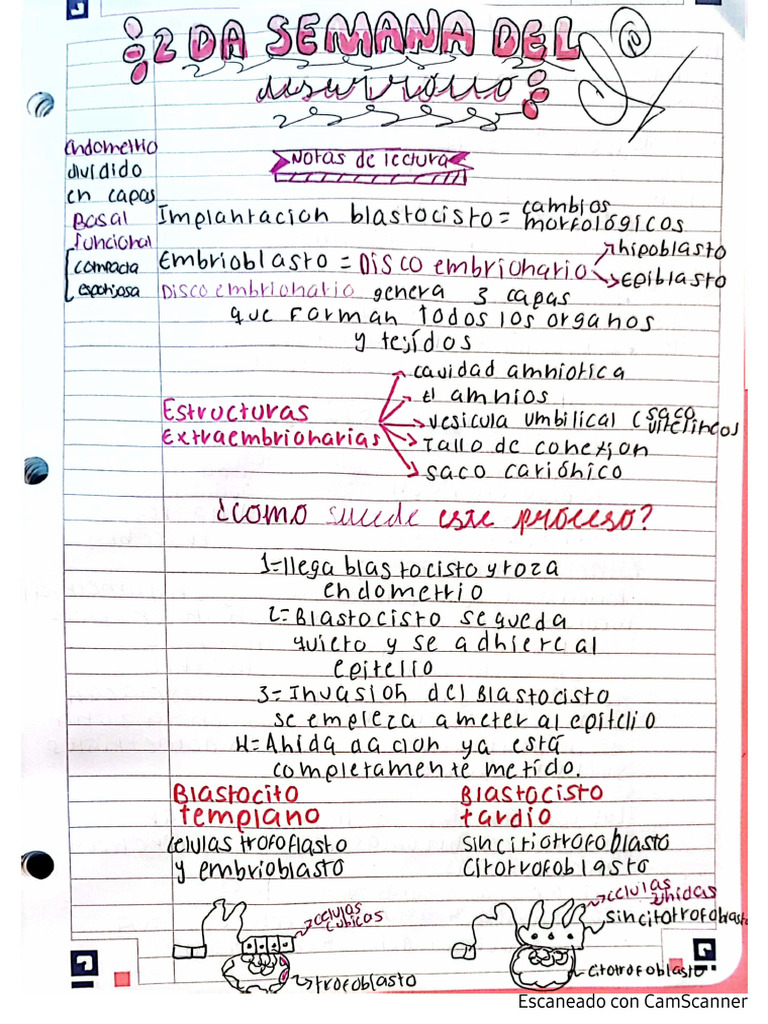 2 DA SEMANA DEL
desarrollo
Notas de lectura
endometrio
dividido
en capas
Basal
funcional
compacta
esponjosa
Implantacion blastocisto = cambios
morfológicos
Embrioblasto = Disco embrionario
hipoblasto
Epiblasto
Disco embrionario genera 3 capas
que forman todos los organos
y tejidos
Estructuras
Extraembrionarias
cavidad amniotica
El amnios
vesicula umbilical (saco
vitelineos
Tallo de conexion
saco cariónico
¿como sucede este proceso?
1=llega blastocisto y roza
endometrio
2=Blastocisto se queda
quieto y se adhiere al
epitelio
3=Invasion del Blastocisto
se empieza a meter al epitelio
4=Ahida dacion ya está
completamente metido.
Blastocito
templano
celulas trofoflasto
y embrioblasto
Blastocisto
tardio
sincitiotrofoblasto
Citotrofoblasto
celulas
cubicos
trofoblasto
celulas
unidas
sincitotrofoblasto
citotrofoblasto
Escaneado con CamScanner